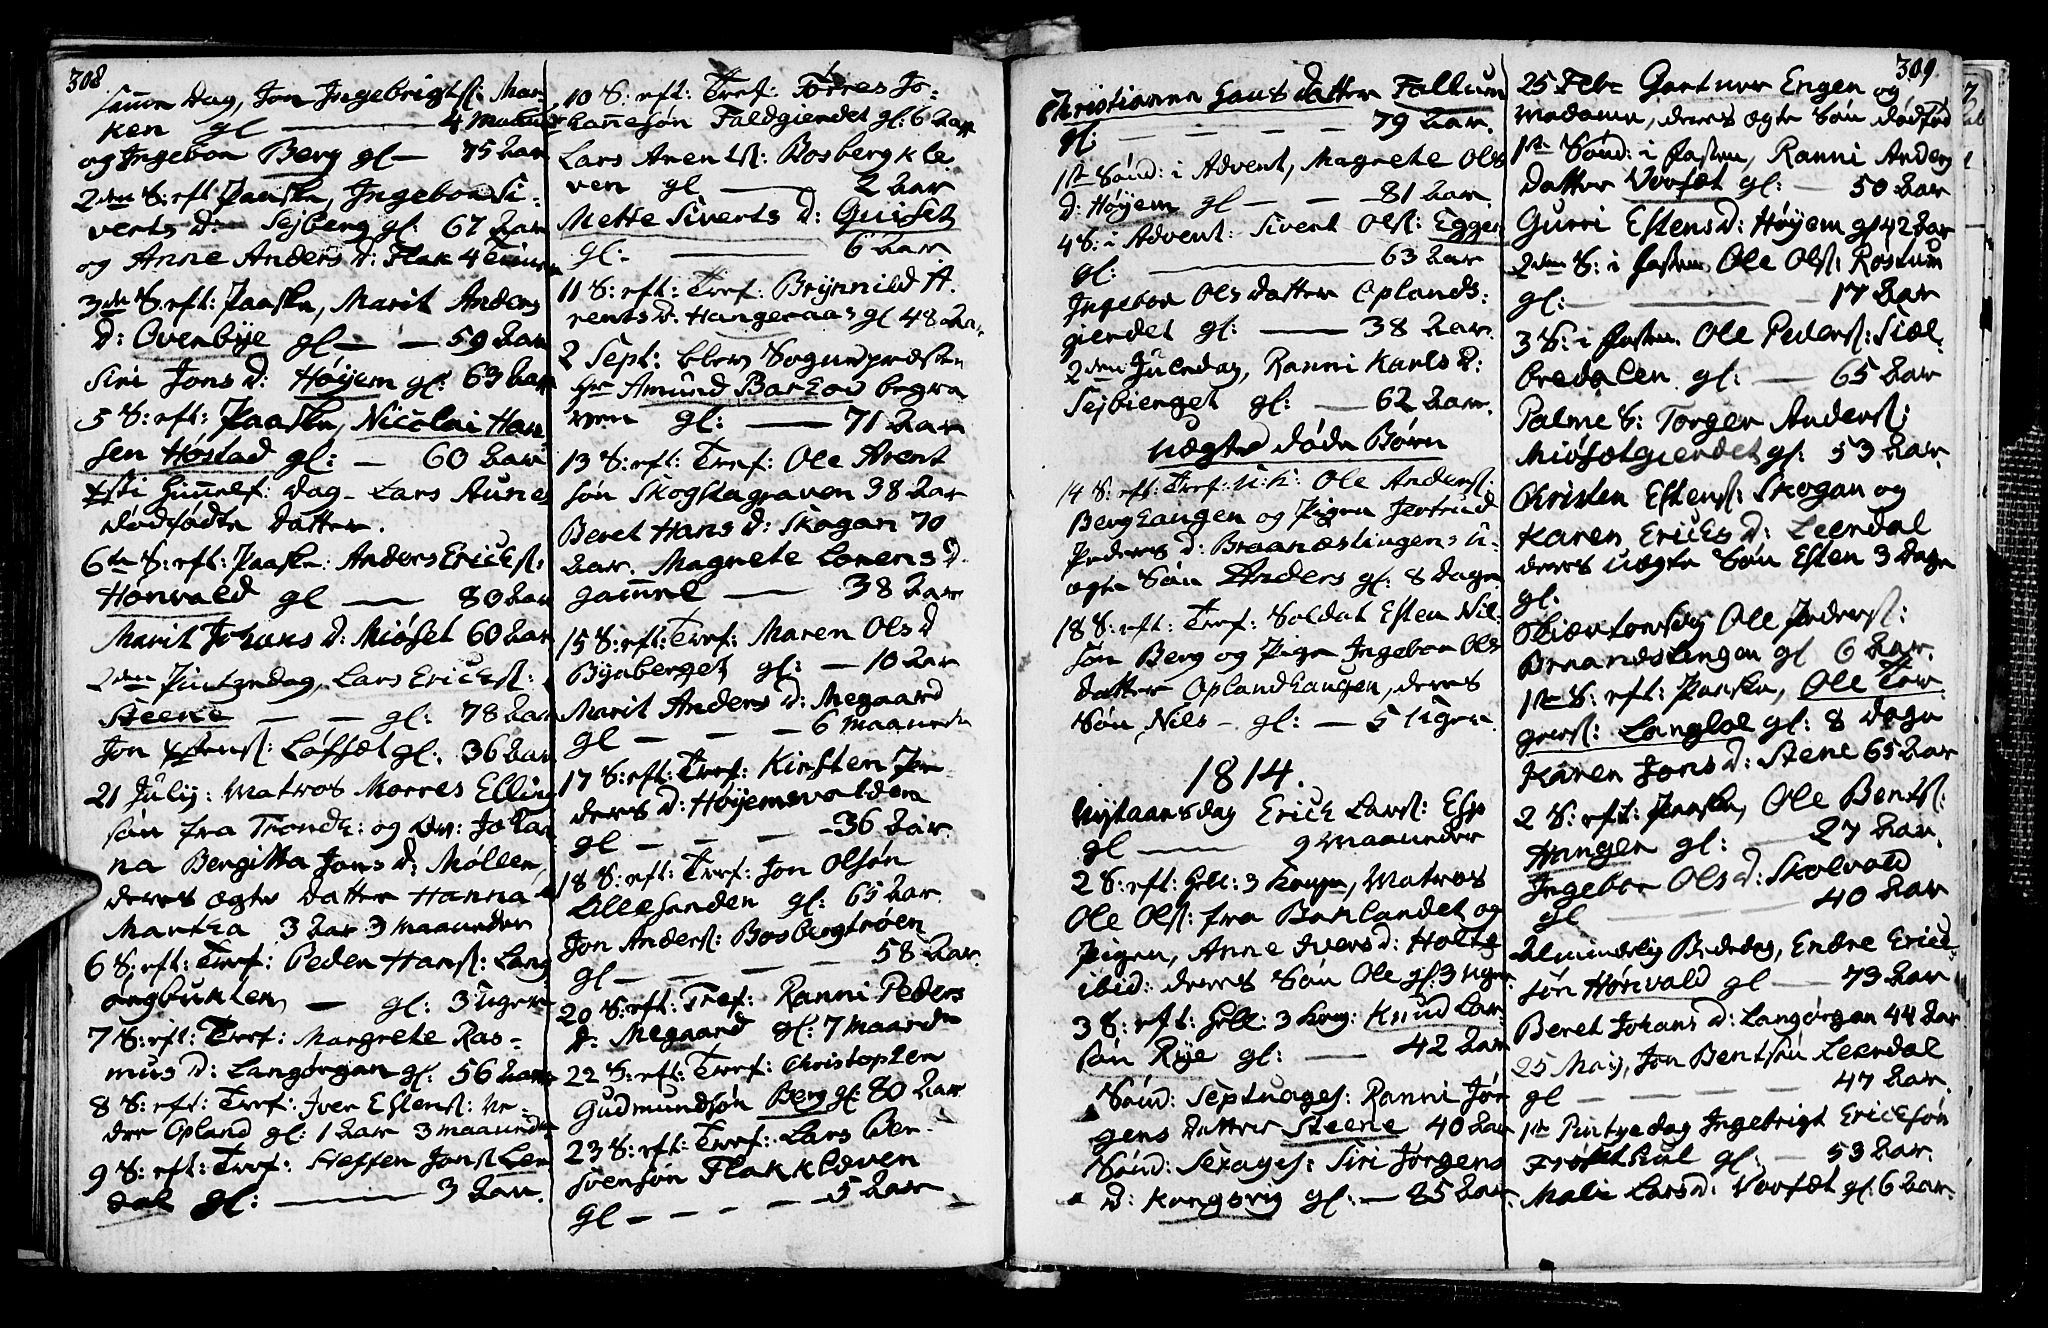 308.
samme Dag, Jon Ingebrigtsß: Mar-
ken gl — 4 Maaneder
og Ingebor Berg gl — 75 Aar
2den S: eft Paaske, Ingebor Si-
verts D: Sejberg gl: 67 Aar
og Anne Anders D: Flak 4 Timer
3de S: eft: Paaske, Marit Anders
D: Ovenbye gl — — 59 Aar
Siri Jons D: Høyem gl: 63 Aar
5 S: eft: Paaske, Nicolai Han-
sen Høstad gl: — 60 Aar
Xsti Himelf: Dag Lars Aunes
dødfødte Datter.
6te S: eft: Paaske: Anders Ericß:
Honvald gl — 80 Aar
Marit Johans D: Miøset 60 Aar
2den Pintzedag, Lars Ericß:
Steene — — gl: 78 Aar
Jon Estensß: Løfset gl: 36 Aar
21 July: Matros Morres Elling
søn fra Trondh: og Qv: Joha-
na Bergitta Jons D: Møllen,
deres ægte Datter Hanna
Martha 3 Aar 3 Maaneder
6 S: eft: Tref: Peder Hansß: Lang
ørgbunten, — gl: 3 Uger
7 S: eft: Tref: Margrete Ras-
mus D: Langørgan gl: 56 Aar
8 S: eft: Tref: Iver Estensß: Ne-
dre Opland gl: 1 Aar 3 Maaneder
9 S: eft: Tref: Steffen Jonsß Leer
dal gl: — 3 Aar.
10 S: eft: Tref: Torres Jo-
hannesøn Faldgiendet gl: 6 Aar
Lars Arentsß: Bosbergkle
ven gl — 2 Aar
Mette Siverts D: Guiset
gl. — 6 Aar
11 S: eft: Tref: Brynnild A-
rents D: Hangeraas gl 48 Aar
2 Sept: blev Sognepræsten
Hr Amund Barhow begra
ven gl: — 71 Aar
13 S: eft: Tref: Ole Arent
søn Skogstagraven 38 Aar
Beret Hans D: Skogan 70
Aar. Magrete Lorens D.
gammel — 38 Aar
15 S: eft: Tref: Maren Ols D
Bynberget gl: — 10 Aar
Marit Anders D: Megaard
gl — — — 6 Maaneder
17 S: eft: Tref: Kirsten Pe-
ders D: Høyemsvolden
gl — — — 36 Aar.
18 S: eft: Tref: Jon Olsøn
Lillesanden gl: 65 Aar.
Jon Andersß: Bosbergtrøen
gl — — — — 58 Aar.
20 S: eft: Tref: Ranni Peders
D. Megaard gl: 7 Maaneder
22 S: eft: Tref: Christopher
Gudmundsøn Berg gl: 80 Aar
23 S: eft: Tref: Lars Ber-
svensøn Flakkleven
gl — — — — 5 Aar
309.
Christianna Hans Datter Fallum
gl: — — — — 79 Aar.
1ste Sønd: i Advent, Magrete Ols
D: Høyem gl — — — 81 Aar.
4 S: i Advent: Sivert Olsß: Eggen
gl: — 63 Aar
Ingebor Ols Datter Oplands-
giendet gl: — 38 Aar.
2den Juledag, Ranni Karls D:
Sejbienget gl: — 62 Aar.
uægte døde Børn
14 S: eft: Tref: U: K: Ole Andersß:
Berghaugen og Pigen Jertrud
Peders D: Braandslingens u-
ægte Søn Anders gl: 8 Dage
18 S: eft: Tref: Soldat Esten Nil-
søn Berg og Pigen Ingebor Ols
datter Oplandhaugen, deres
Søn Nils — gl: — 5 Uger.
1814.
Nytaarsdag Erich Larsß: Esp
gl — 9 Maaneder
2 S: eft: Hell: 3 Konger, Matros
Ole Olsß: fra Baklandet og
Pigen, Anne Ivers D: Holte
ibid: deres Søn Ole gl: 3 Uger
3 S: eft: Hell: 3 Kong: Knud Lar-
søn Rye gl: — 42 Aar
Sønd: Septuages: Ranni Jør-
gens Datter Steene 40 Aar
Sønd: Sexages: Siri Jørgens
D: Kongsvig gl: — 85 Aar
25 Febr Gartner Engen og
Madame, deres ægte Søn dødfød
1ste Sønd: i Fasten, Ranni Anders
Datter Vorfæt gl: — 50 Aar
Gurri Estens D: Høyem gl 42 Aar
2den S: i Fasten Ole Olsß: Rostum
gl: — — 17 Aar
3 S: i Fasten Ole Pedersß: Siæl-
bredalen gl: — 65 Aar
Palme S: Torger Andersß:
Miøsætgiendet gl: 53 Aar.
Christen Estensß: Skogan og
Karen Ericks D: Leerdal
deres uægte Søn Esten 3 Dage
gl.
Skiærtorsdag Ole Pedersß:
Braandslingen gl 6 Aar.
1ste S: eft: Paaske, Ole Tor-
gersß: Langlol gl: 8 Dage
Karen Jons D: Stene 65 Aar
2 S: eft: Paaske, Ole Bentsß:
Hangen gl: — 27 Aar.
Ingebor Ols D: Skolvold
gl — — — — 40 Aar
Almindelig Bededag, Endre Erick-
søn Hønvald gl — 73 Aar
Beret Johans D: Langørgan 44 Aar
25 May, Jon Bentsøn Leerdal
gl — — — — 47 Aar.
1ste Pintzedag Ingebrigt Ericksøn
gl: — 53 Aar.
Mali Lars D: Vorfæt gl: 6 Aar.